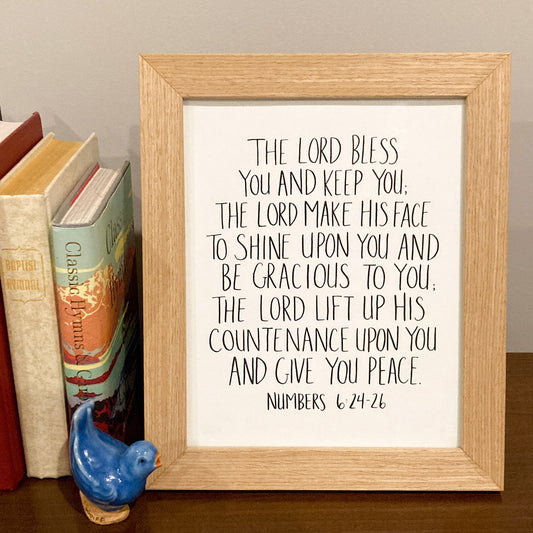 THE LORD BLESS
YOU AND KEEP YOU;
THE LORD MAKE HIS FACE
TO SHINE UPON YOU AND
BE GRACIOUS TO YOU;
THE LORD LIFT UP HIS
COUNTENANCE UPON YOU
AND GIVE YOU PEACE.
NUMBERS 6:24-26
BAPTIST
HYMNAL
Classic Hymns &